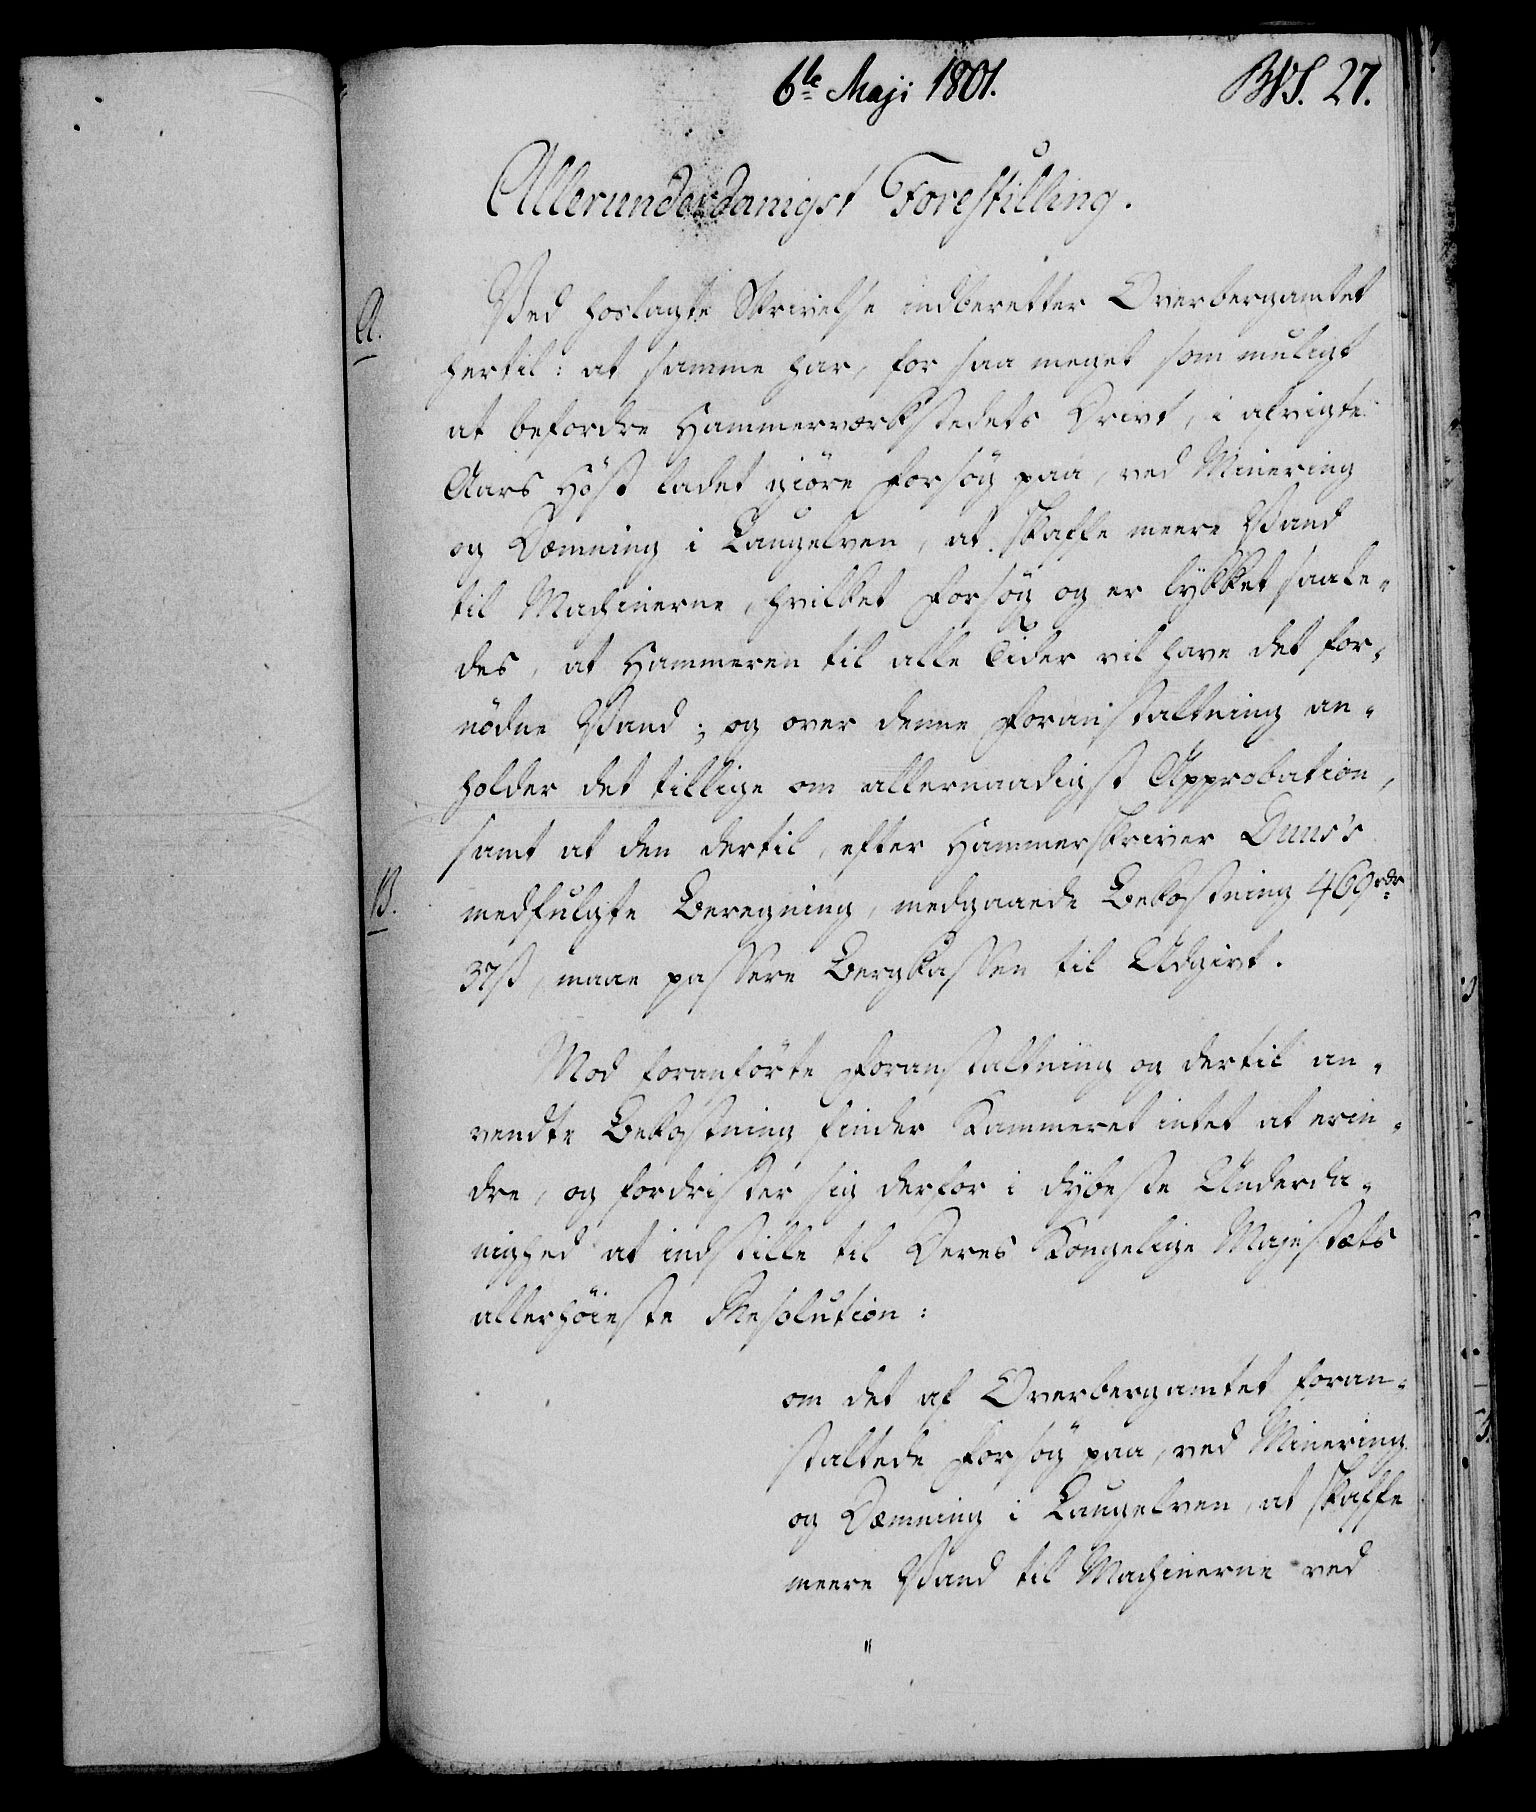 6te Maji 1801.
BWS. 27.
Allerunderdanigst Forestilling.
A.
Ved hoslagte Skrivelse indberetter Overbergamtet
hertil: at samme har, for saa meget som muligt
at befordre Hammerværkstedets Drivt, i afvigte
Aars Høst ladet giöre Forsög paa, ved Minering
og Dæmning i Laugelven, at skaffe meere Vand
til Machinerne, hvilket Forsög og er lykket saale-
des, at Hammeren til alle Tider vil have det for-
nödne Vand; og over denne Foranstaltning an-
holder det tillige om allernaadigst Approbation,
samt at den dertil, efter Hammerskriver
B.
medfulgte Beregning, medgaaede Bekostning 469rdr
37ß, maae passere Bergkassen til Udgivt.
Mod foranförte Foranstaltning og dertil an-
vendte Bekostning finder Kammeret intet at erin-
dre, og fordrister sig derfor i dybeste Underda-
nighed at indstille til Deres Kongelige Majestæts
allerhöieste Resolution:
om det af Overbergamtet foran-
staltede Forsög paa, ved Minering
og Dæmning i Laugelven, at skaffe
meere Vand til Machinerne ved
"